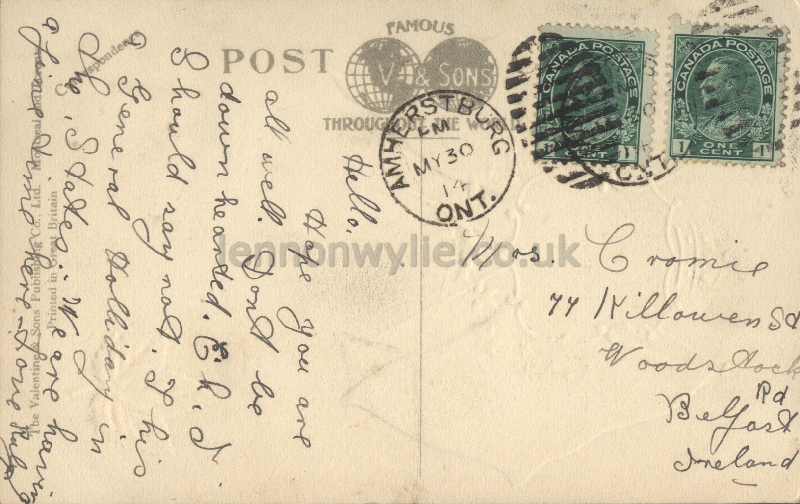 FAMOUS
V & SONS
THROUGHOUT THE WORLD
POST
AMHERSTBURG
PM
MY 30
14
ONT.
CANADA POSTAGE
1 ONE CENT 1
CANADA POSTAGE
1 ONE CENT 1
Hello,
Hope you are
all well. Don't be
down hearted. Eh. I
Should say not. This
a General Holliday in
the States. We are having
a fine time here. Love
The Valentine & Sons Publishing Co., Ltd. Montreal and
Printed in Great Britain
Mrs. Cromie
77 Killowen St
Woodstock
Rd
Belfast
Ireland
lennonwylie.co.uk